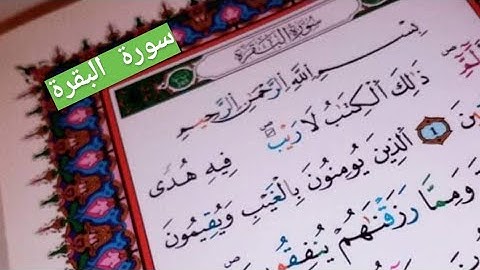 سورة البقرة
سُورَةُ البَقَرَةِ
بِسْمِ اللَّهِ الرَّحْمَنِ الرَّحِيمِ
ذَلِكَ الْكِتَبُ لَا رَيْبَ فِيهِ هُدًى
١ الَّذِينَ يُومِنُونَ بِالْغَيْبِ وَيُقِيمُونَ
وَمِمَّا رَزَقْنَهُمْ